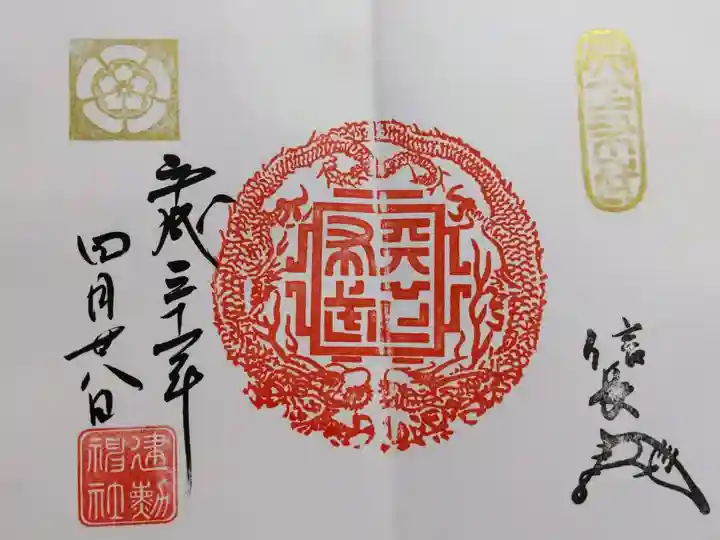 天下
布武
信長
平成三十一年
四月廿八日
建勲
神社